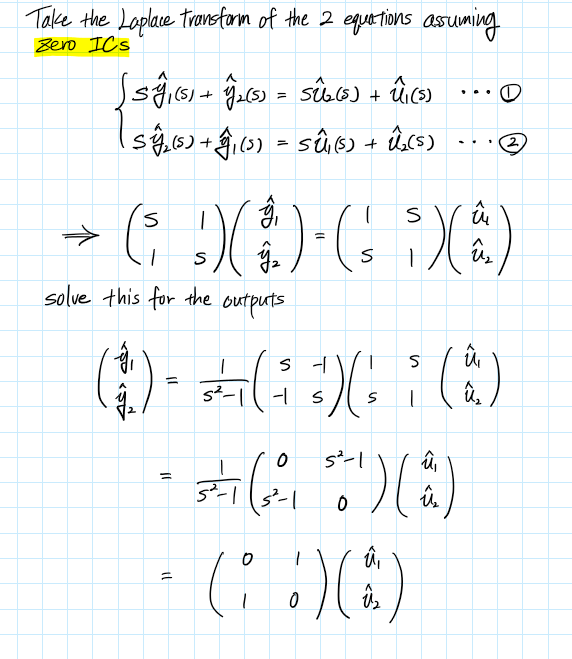 Take the Laplace transform of the 2 equations assuming
zero ICs
{ sŷ₁(s) + ŷ₂(s) = sû₂(s) + û₁(s) ... ①
sŷ₂(s) + ŷ₁(s) = sû₁(s) + û₂(s) ... ②
⇒ (s 1; 1 s)(ŷ₁; ŷ₂) = (1 s; s 1)(û₁; û₂)
solve this for the outputs
(ŷ₁; ŷ₂) = 1/(s²-1) (s -1; -1 s)(1 s; s 1 (û₁; û₂)
= 1/(s²-1) (0 s²-1; s²-1 0)(û₁; û₂)
= (0 1; 1 0)(û₁; û₂)